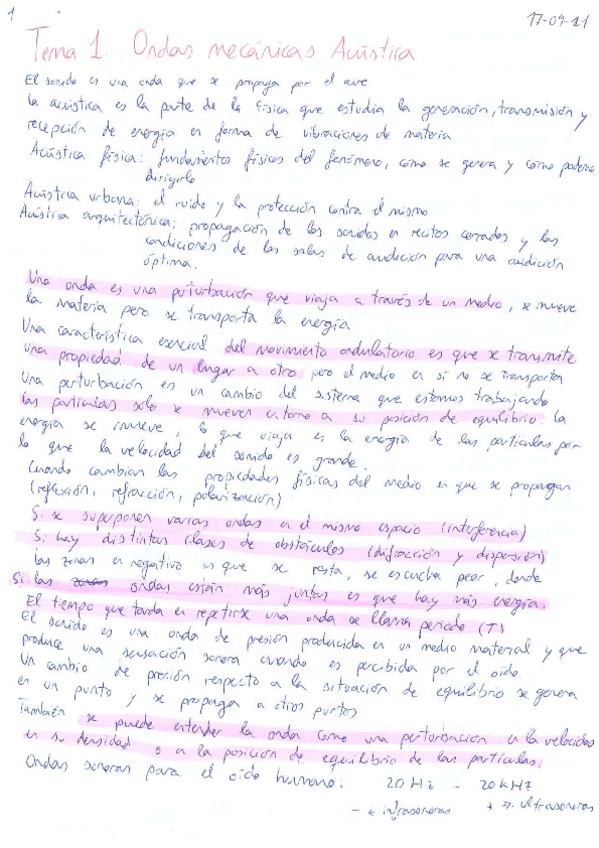 1
17-09-21
Tema 1. Ondas mecánicas Acústica
El sonido es una onda que se propaga por el aire
La acústica es la parte de la física que estudia la generación, transmisión y
recepción de energía en forma de vibraciones de materia
Acústica física: fundamentos físicos del fenómeno, cómo se genera y cómo podemos
dirigirlo
Acústica urbana: el ruido y la protección contra el mismo
Acústica arquitectónica: propagación de los sonidos en recitos cerrados y las
condiciones de las salas de audición para una audición
óptima.
Una onda es una perturbación que viaja a través de un medio, se mueve
la materia pero se transporta la energía
Una característica esencial del movimiento ondulatorio es que se transmite
una propiedad de un lugar a otro pero el medio en si no se transporta
Una perturbación es un cambio del sistema que estamos trabajando
Las partículas solo se mueven entorno a su posición de equilibrio. La
energía se mueve, lo que viaja es la energía de las partículas por
lo que la velocidad del sonido es grande.
Cuando cambian las propiedades físicas del medio en que se propagan
(reflexión, refracción, polarización)
Si se superponen varias ondas en el mismo espacio (interferencia)
Si hay distintas clases de obstáculos (difracción y dispersión)
Las zonas en negativo es que se resta, se escucha peor, donde
Si las ondas están más juntas es que hay más energía.
El tiempo que tarda en repetirse una onda se llama periodo (T)
El sonido es una onda de presión producida en un medio material y que
produce una sensación sonora cuando es percibida por el oído.
Un cambio de presión respecto a la situación de equilibrio se genera
en un punto y se propaga a otros puntos
También se puede entender la onda como una perturbación en la velocidad
en su densidad o a la posición de equilibrio de las partículas.
Ondas sonoras para el oído humano: 20 Hz - 20 kHz
infrasonoras ultrasonoras